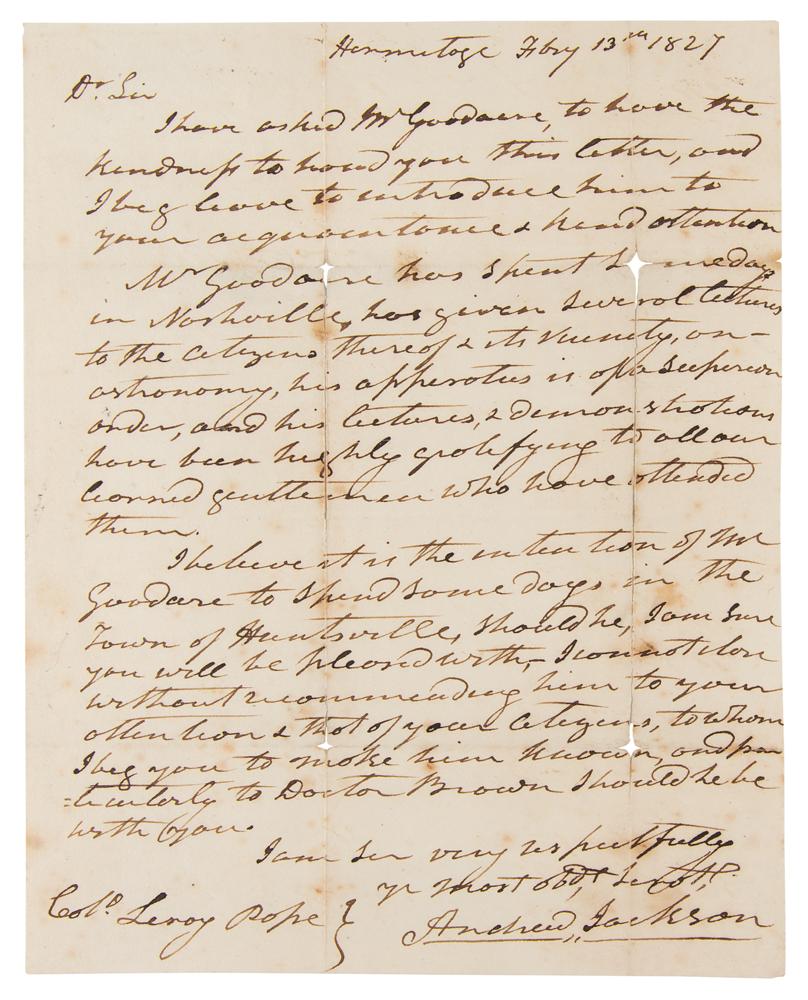 Hermitage Fbry 13th 1827
Dr. Sir
I have asked Mr Goodacre, to have the
kindness to hand you this letter, and
I beg leave to introduce him to
your acquaintance & kind attention
Mr Goodacre has spent somedays
in Nashville, has given several lectures
to the citizens thereof & its vicinity, on -
astronomy, his apparatus is of a superior
order, and his lectures, & demonstrations
have been highly gratifying to all our
learned gentlemen who have attended
them.
I believe it is the intention of Mr
Goodacre to spend some days in the
Town of Huntsville, should he, I am sure
you will be pleased with, - I cannot close
without recommending him to your
attention & that of your citizens, to whom
I beg you to make him known, and par
=ticularly to Doctor Brown should he be
with you.
I am Sir very respectfully
yr most obdt. servt.
Colo. Leroy Pope }
Andrew Jackson